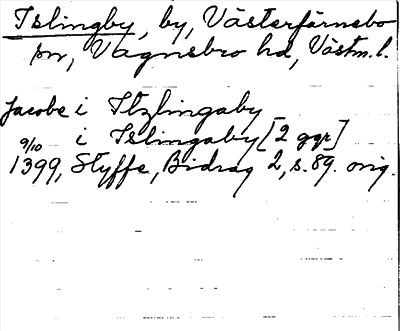 Islingby, by, Västerfärnebo
sn, Vagnsbro hd, Västm. l.
Jacobe i Itzlingaby
i Islingaby [2 ggr]
9/10
1399, Styffe, Bidrag 2, s. 89. orig.